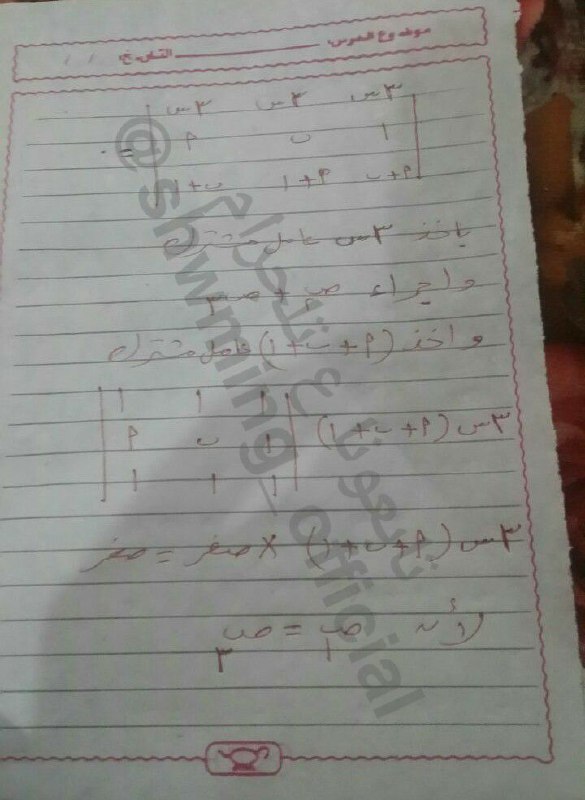 موضوع الدرس: التاريخ:
٣س ٣س ٣س
١ ب م
م+ب م+١ ب+١ = ٠
بأخذ ٣س عامل مشترك
واجراء ص٢ + ص٣
واخذ (م+ب+١) عامل مشترك
٣س (م+ب+١)
١ ١ ١
١ ب م
١ ١ ١
٣س (م+ب+١) × صفر = صفر
لأنه ص١ = ص٣
تابعونا ع تلجرام
@shwming_official